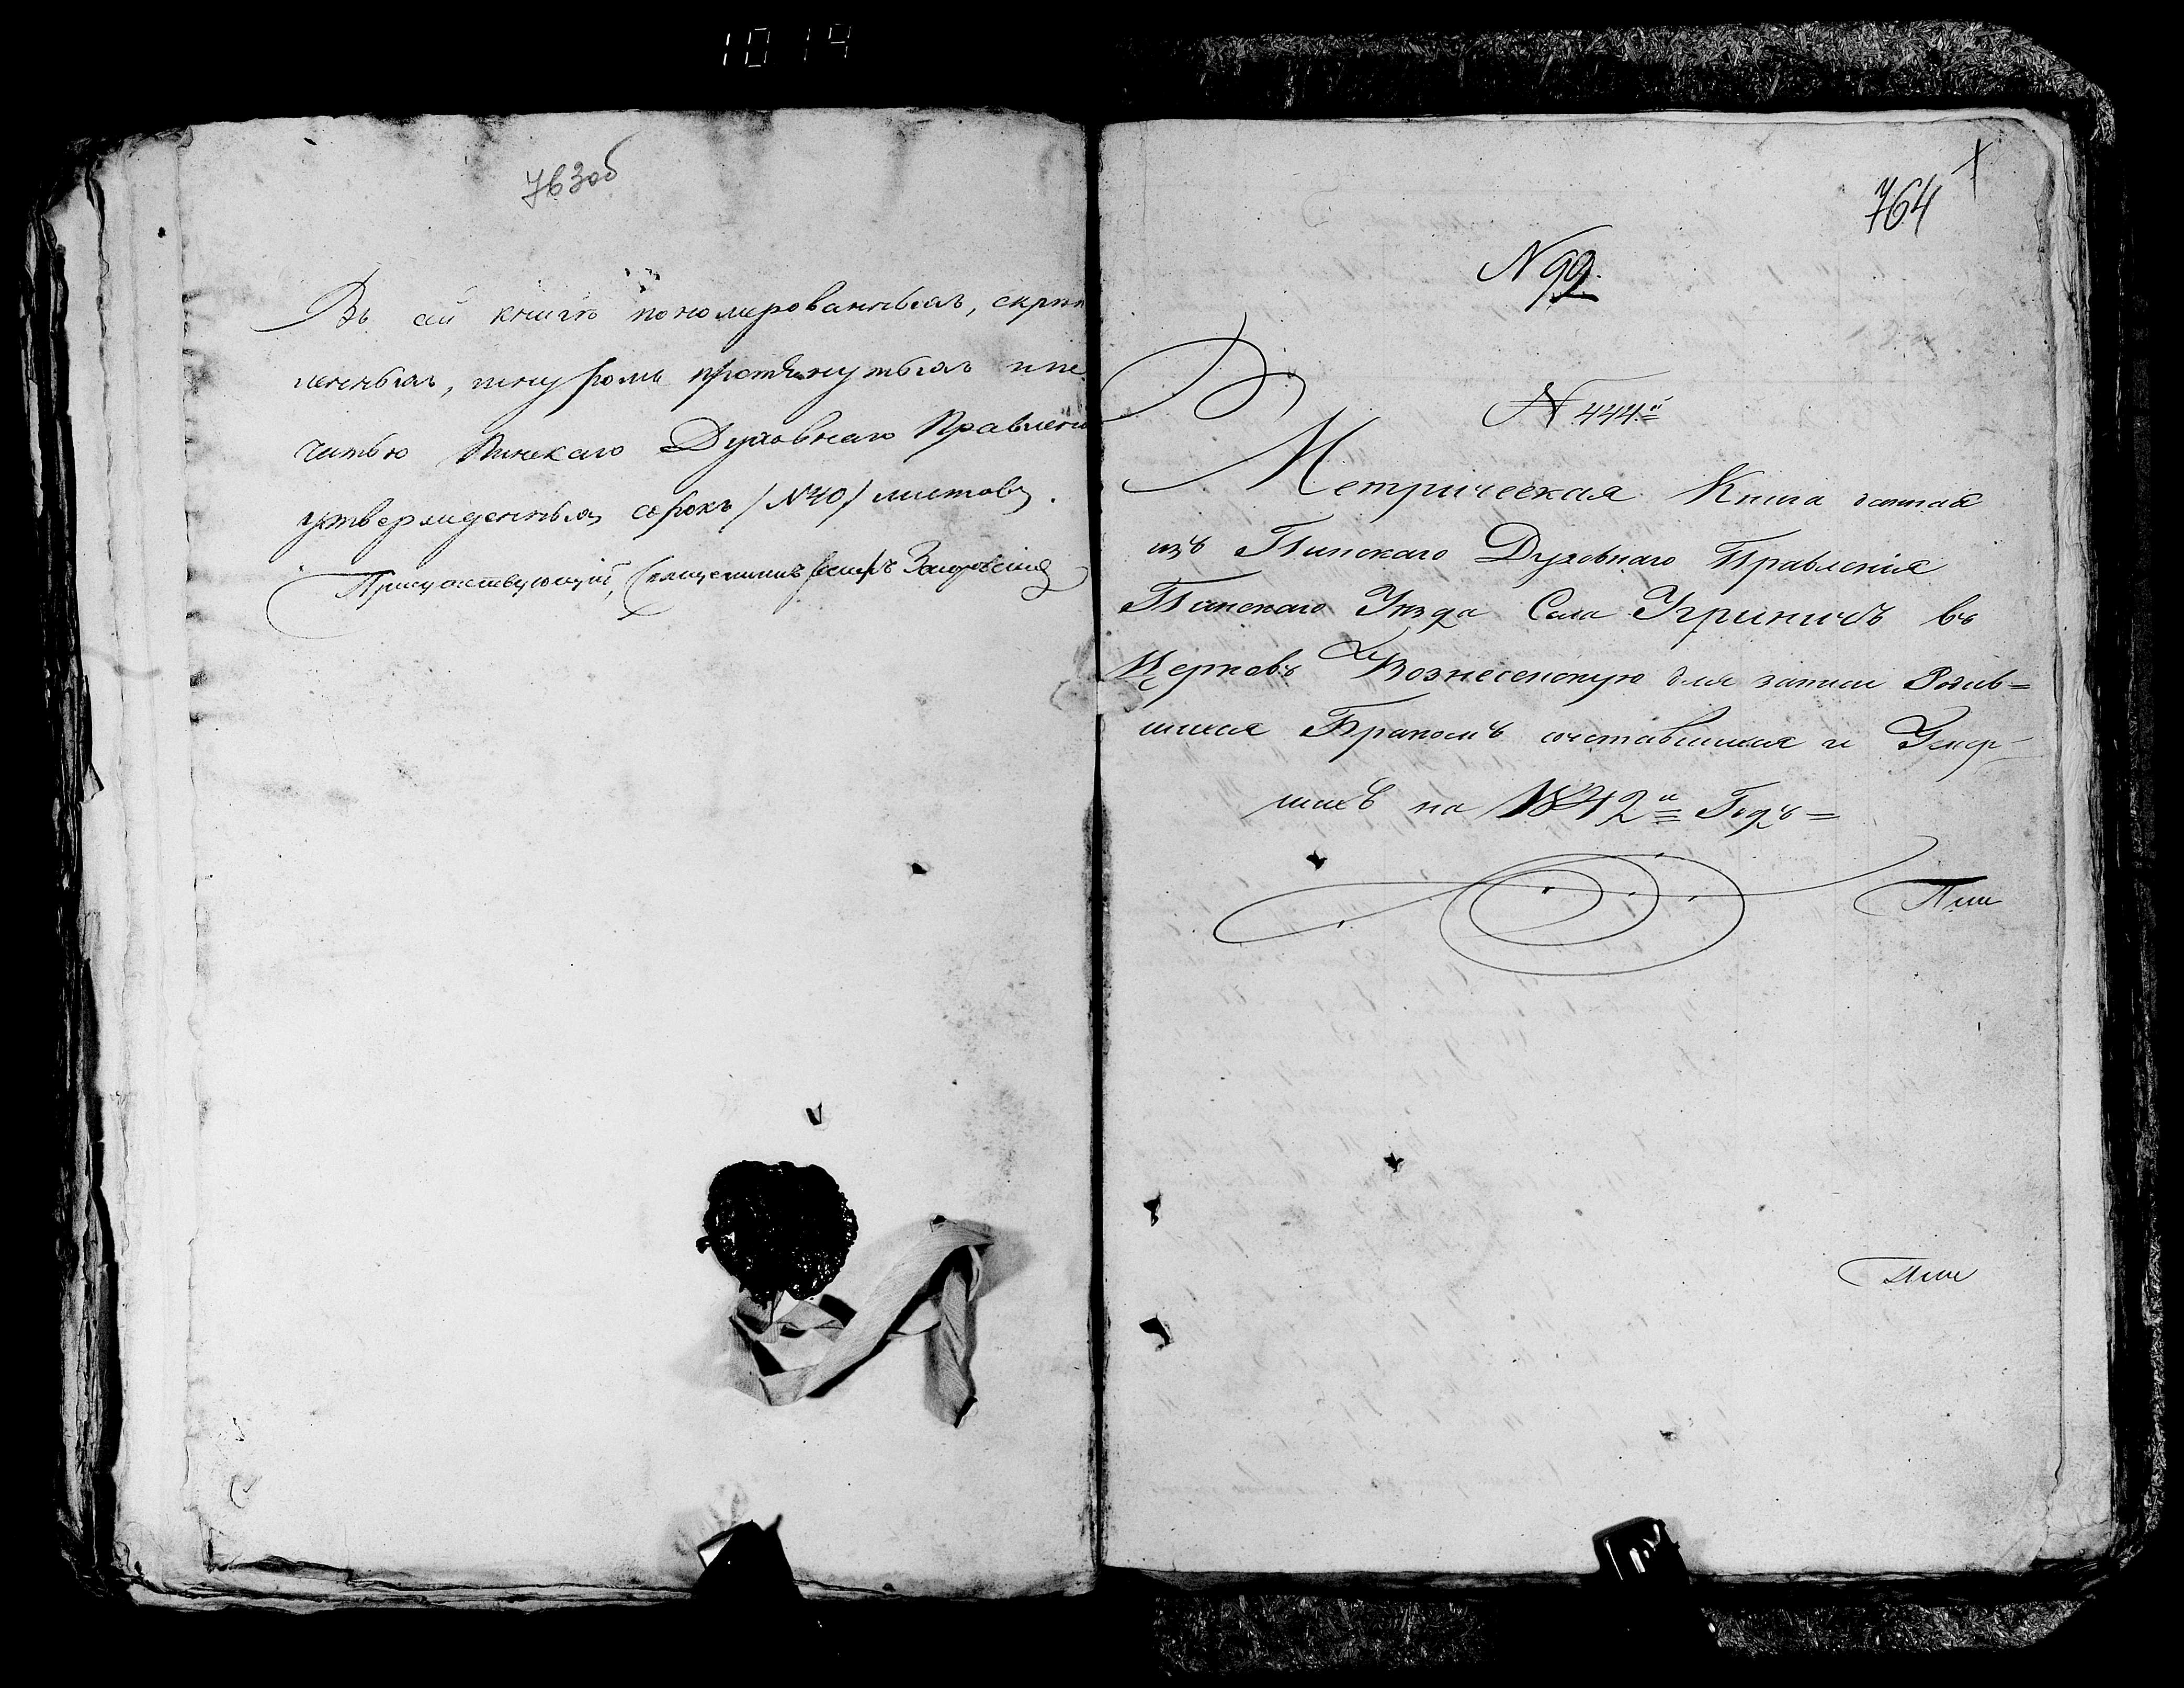 1014
763об
Въ сей книгѣ пономерованныхъ, скрѣп
ленныхъ, шнуромъ протянутыхъ и пе
чатью Пинскаго Духовнаго Правлені
утвержденныхъ сорокъ /№40/ листовъ.
Присутствующій, Священникъ
764
N 99.
N 444й
Метрическая Книга данная
изъ Пинскаго Духовнаго Правленія
Пинскаго Уѣзда Села Угриничъ въ
Церковь Вознесенскую для записи Родив=
шихся Бракомъ сочетавшихся и Умер-
шихъ на 1842й Годъ=
Пин
Пин